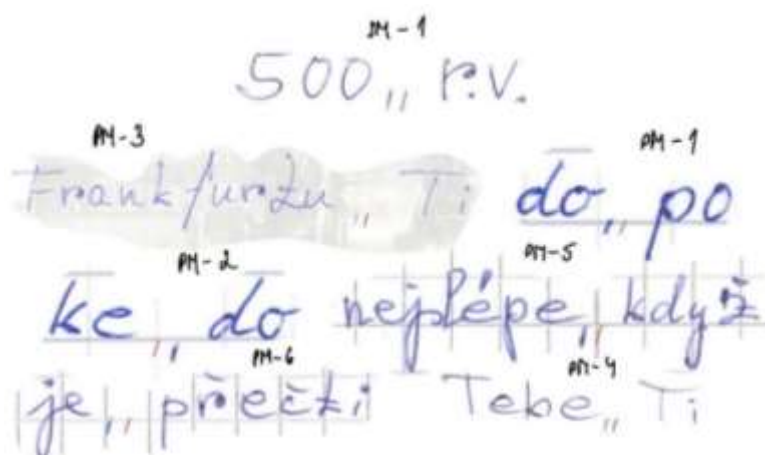 PM-1
500,, r.v.
PM-3 PM-1
Frankfurtu,, Ti do,, po
PM-2 PM-5
ke,, do nejlépe,, když
PM-6 PM-4
je,, přečti Tebe,, Ti